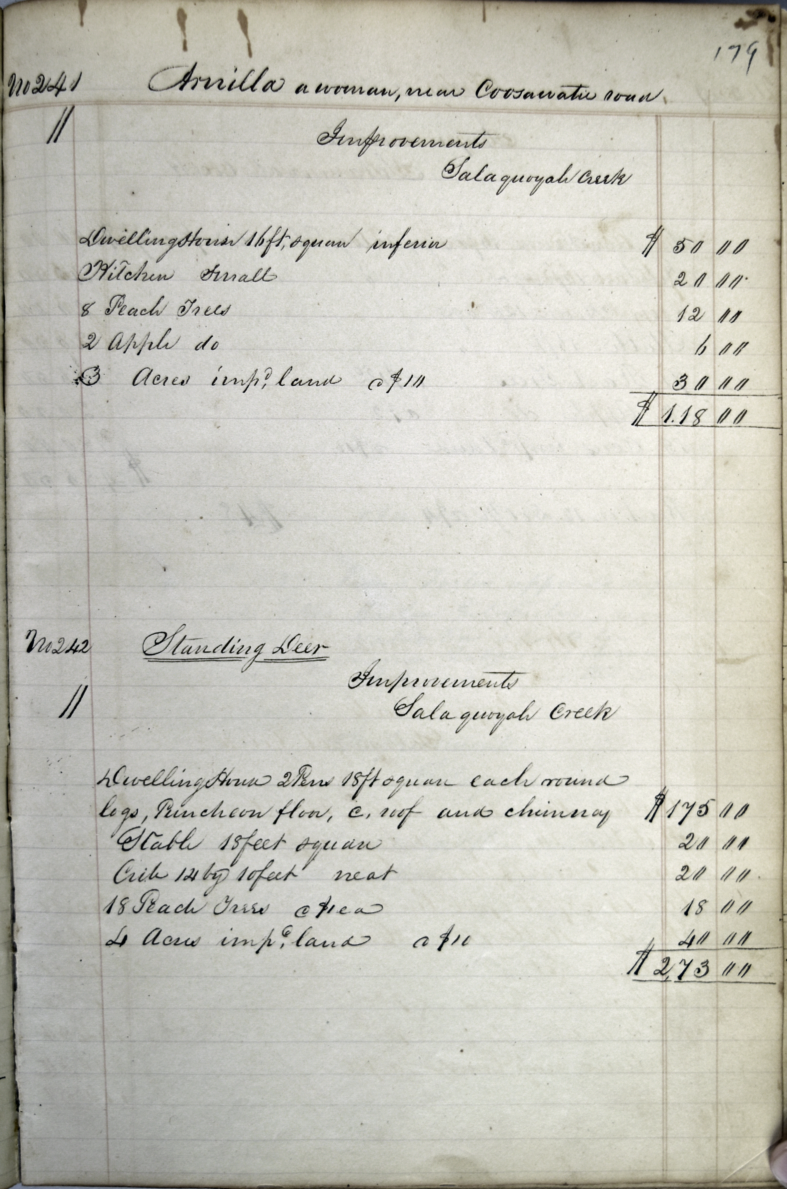 179
No 241 Arnilla a woman, near Coosawatie road.
"
Improvements
Salaquoyah Creek
Dwelling House 16 ft, square inferior $ 50 00
Kitchen Small 20 00
8 Peach Trees 12 00
2 Apple do 6 00
3 Acres imp.d land @ $10 30 00
$ 1.18 00
No 242 Standing Deer
Improvements
"
Salaquoyah Creek
Dwelling House 2 Pens 18 ft square each round
logs, Puncheon floor, c. roof and chimney $ 175 00
Stable 18 feet square 20 00
Crib 14 by 10 feet neat 20 00
18 Peach Trees @ $1 ea 18 00
4 Acres imp.d land @ $10 40 00
$ 2,73 00